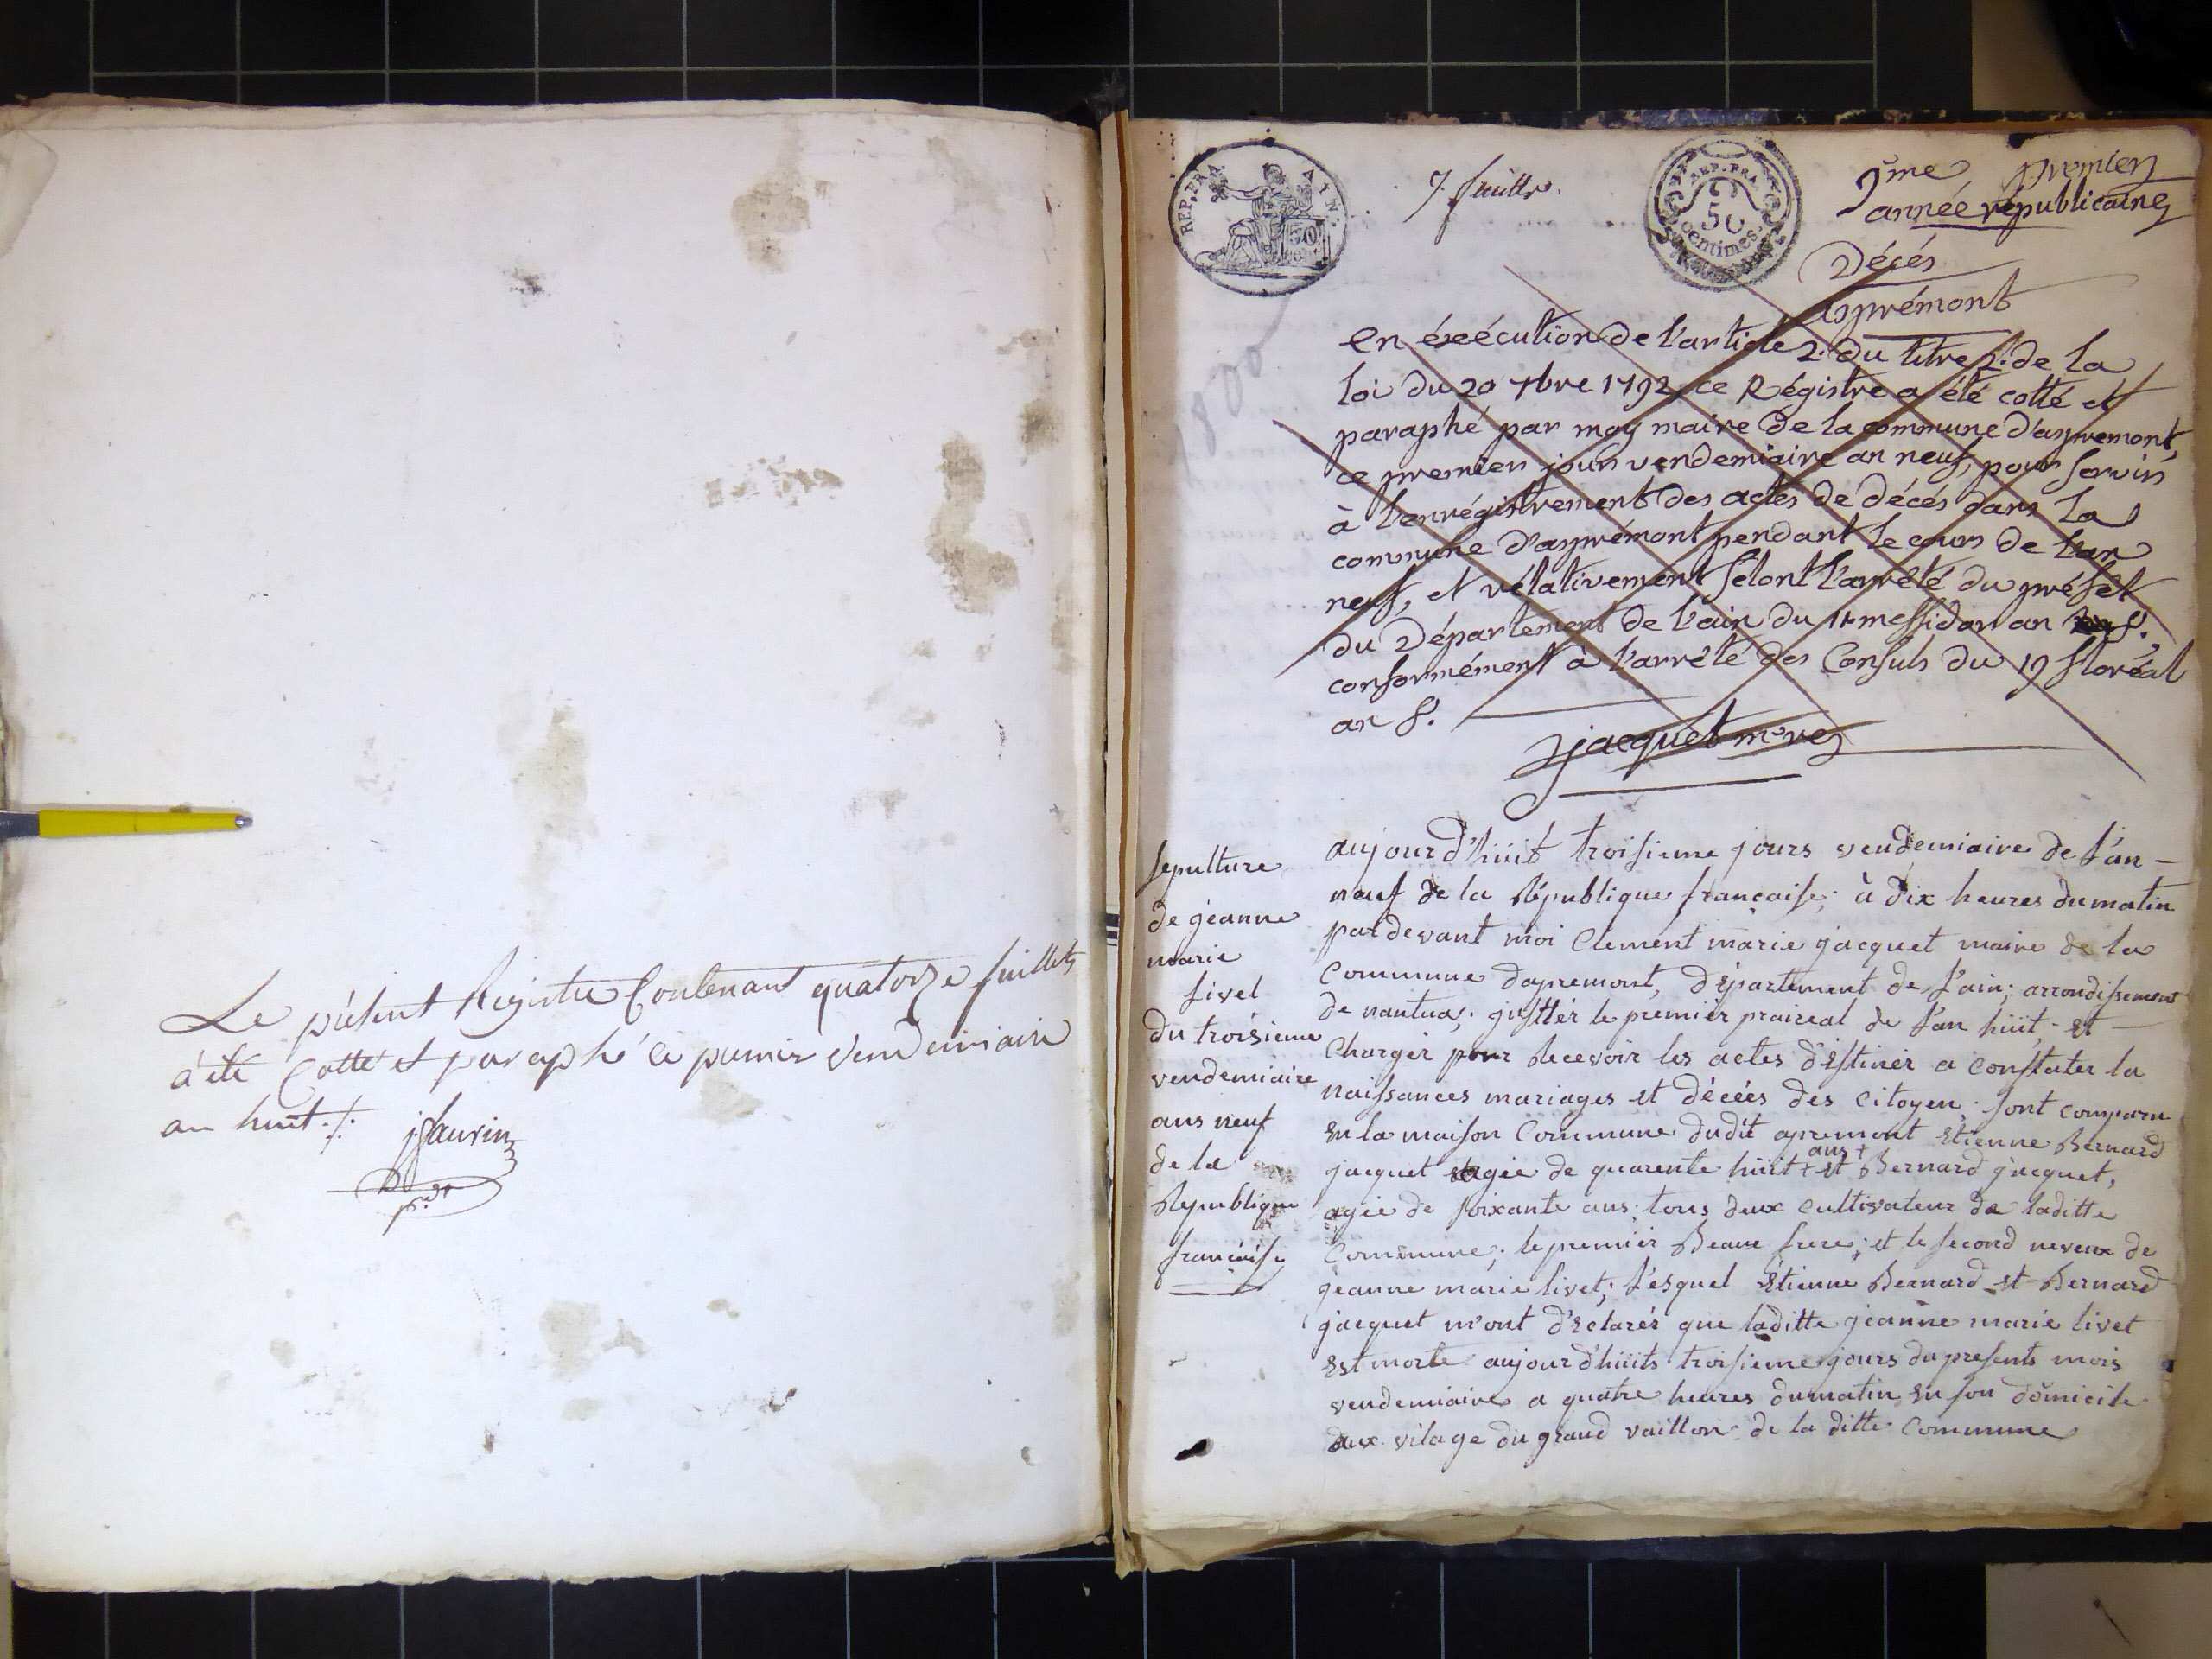 Le présent Registre Contenant quatorze fuillets
à été Cotté et paraphé ce pumier Vendemiaire
an huit ./.
jfaurin
pdt
REP. FRA. AIN.
50
7 fuillts.
REP. FRA.
50
centimes.
9me premier
année républicaine
Décés
asprémont
En éxécution de l'article 2. du titre 2. de la
loi du 20 7bre 1792 ce Régistre a été cotté et
paraphé par moy maire de la commune d'aspremont,
ce premier jour vendemiaire an neuf, pour servir
à l'enrégistrement des actes de décés dans la
commune d'asprémont pendant le cours de l'an
neuf, et rélativement selont l'arrêté du préfet
du Département de l'ain du 14 messidor an 8.
conformément à l'arrêté des Consuls du 19 floréal
an 8.
jacquet mre
1800
sepulture
de jeanne
marie
livet
du troisieme
vendemiaire
ans neuf
de la
Republique
francaise
aujourd'hüit troisieme jours vendemiaire de l'an -
neuf de la République francaise; à dix heures du matin
par devant moi Clement marie jacquet maire de la
Commune dapremont, département de l'ain; arrondissement
de nantua; justtér le premiér praireal de l'an hüit; et
Chargér pour Recevoir les actes déstinér a constater la
naissances mariages et décées des Citoyen; sont comparu
En la maison Commune dudit apremont Etienne Bernard
jacquet agée de quarente hüit + ans + et Bernard jacquet,
agée de soixante ans; tous deux Cultivateur de laditte
Commune; le premiér Beaux frere; et le second neveux de
jeanne marie livet; l'ésquel Etienne Bernard et Bernard
jacquet m'ont déclarér que laditte jeanne marie livet
Est morte aujourd'hüits troisieme jours du presents mois
vendemiaire a quatre heures du matin En son domicile
aux vilage du grand vaillon de la ditte Commune